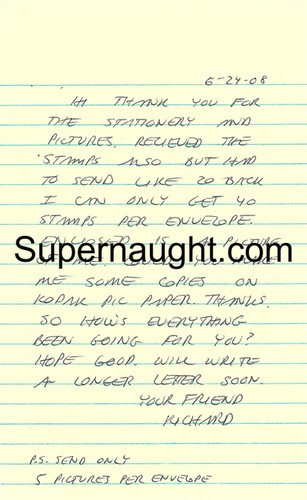 6-24-08
HI THANK YOU FOR
THE STATIONERY AND
PICTURES. RECIEVED THE
STAMPS ALSO BUT HAD
TO SEND LIKE 20 BACK
I CAN ONLY GET 40
STAMPS PER ENVELOPE.
ENCLOSED IS A PICTURE
Supernaught.com
OF ME. COULD YOU MAKE
ME SOME COPIES ON
KODAK PIC PAPER. THANKS.
SO HOW'S EVERYTHING
BEEN GOING FOR YOU?
HOPE GOOD. WILL WRITE
A LONGER LETTER SOON.
YOUR FRIEND
RICHARD
P.S. SEND ONLY
5 PICTURES PER ENVELOPE